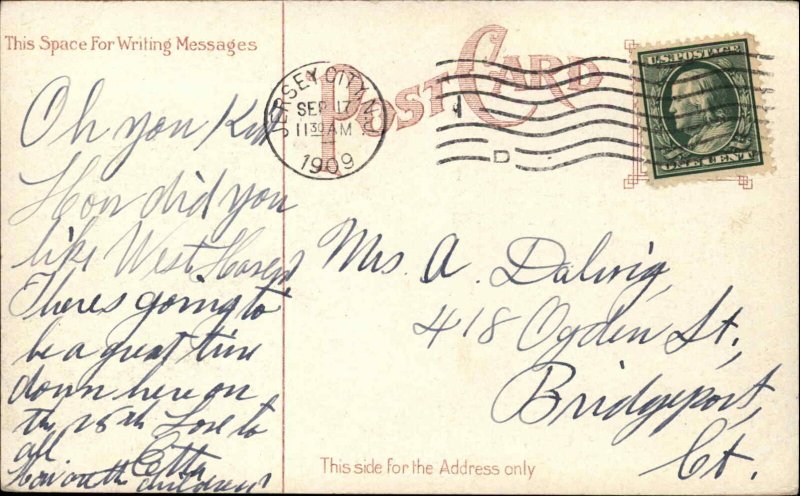 This Space For Writing Messages
POST CARD
JERSEY CITY, N.J.
SEP 17
11 30 AM
1909
D
U.S. POSTAGE
ONE CENT
Oh you Kid
How did you
like West Haven
Theres going to
be a great time
down here on
the 25th Love to
all Etta
How are the children
Mrs. A. Dalwig,
418 Ogden St.,
Bridgeport,
Ct.
This side for the Address only